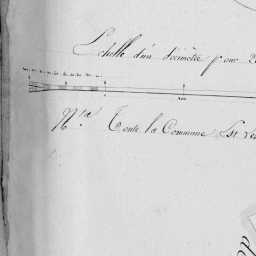 Echelle d'un Decimètre pour 2
Nta Toute la Commune Est
de